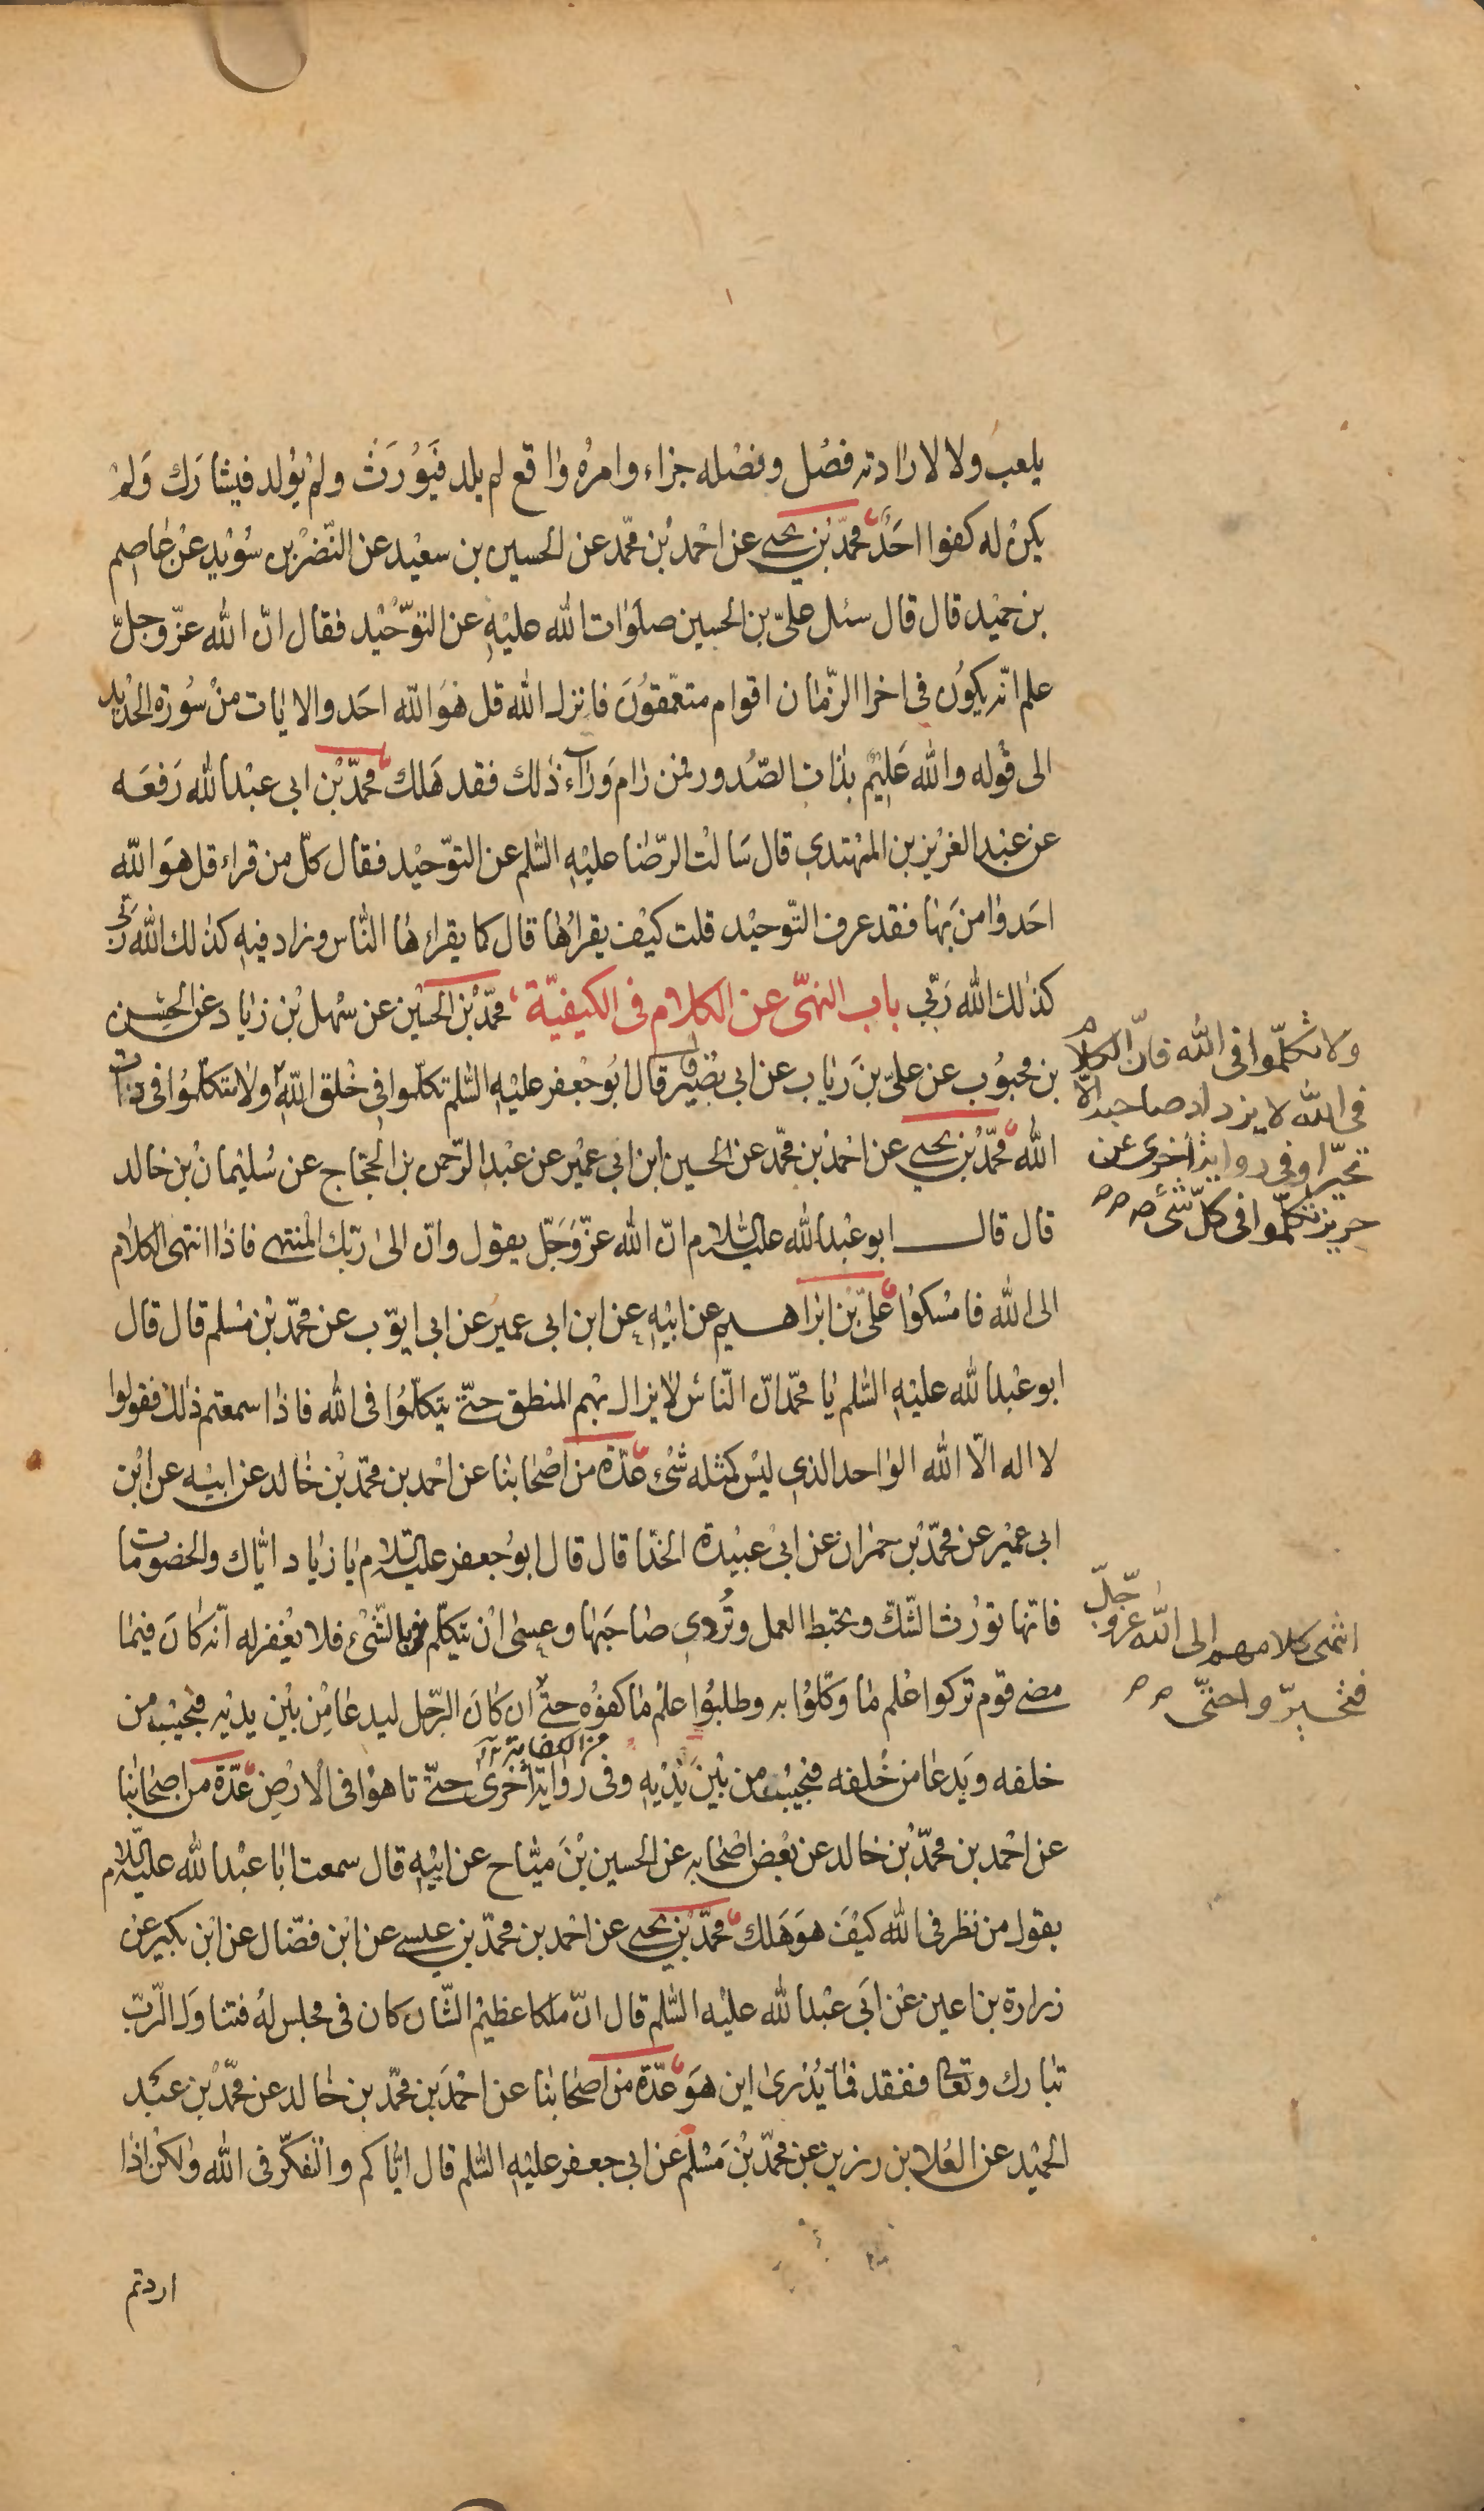 يلعب ولا لارادته فصْل وفصْله جزاء وامرُه واقع لم يلد فَيُوْرَثْ ولمْ يُولد فيشارَك وَلمْ
يكنْ له كفوا احَدٌ محمّد بْن يحيى عن احْمد بْن محمّد عن الحسين بن سعيْد عن النّضْر بن سُوَيْد عنْ عاصِم
بن حميْد قال قال سئل علىّ بن الحسين صلَوات الله عليْهِ عن التوّحيْد فقال انّ الله عزّ وجلّ
علم انّه يكوُن فى اخر الزّمان اقوام متعمّقوُنَ فانزل الله قل هوَ الله احَد والايات منْ سُورة الحديد
الى قوْله والله عَليْمٌ بذات الصّدور فمن رام وَراء ذلك فقد هَلك محمّد بْن ابى عبْد الله رَفعَه
عن عبْد العزيز بن المهْتدى قال سَالْت الرّضا عليْهِ السّلم عن التوّحيْد فقال كلّ من قراء قل هوَ الله
احَد وامن بَها فقد عرف التّوحيْد قلت كيْف يقراُها قال كما يقراءها النّاس وزاد فيْهِ كذلك الله ربّى
كذلك الله رَبّى باب النهّى عن الكلام فى الكيفيّة محمّد بْن الحسَيْن عن سْهل بْن زياد عن الحسَن
بن محبُوب عن علىّ بنَ رياب عن ابى بصْيْر قال قال ابُو جْعفر عليْهِ السّلم تكلّموا فى خْلق اللهِ ولا تتكلّمُوا فى ذات
الله محمّد بْن يحيى عن احْمد بْن محمّد عن الحسين ابْن ابى عميْر عن عبْد الرّحمن بن الحجّاج عن سُليْمان بْن خالد
قال قال ابو عْبد الله عليه السّلام انّ الله عزّ وَجَلّ يقول وانّ الى رَبّك المْنتهى فاذا انتهى الكلام
الى الله فامْسكوُا علىّ بْن ابْراهيم عن ابيْهِ عن ابن ابى عمير عن ابى ايوّب عن محمّد بْن مْسلم قال قال
ابو عْبد الله عليْهِ السّلم يا محمّد انّ النّاسَ لايزال بهم المنطق حتّى يتكلّمُوا فى الله فاذا سمعتم ذلك فقولوا
لا اله الّا الله الواحد الذى ليْس كمثله شْئ عدّة من اصْحابنا عن احْمد بن محمّد بْن خالد عن ابيْه عن ابْن
ابى عميْر عن محمّد بْن حمْران عن ابىْ عبيْدة الحذّا قال قال ابوُ جعفر عليه السّلام يا زياد ايّاك والخصوُمات
فانّها توْرث الشّك وتحْبط العمل وتُردى صَاحبَها وعسى انْ يتكلّم بالشّىْء فلا يغْفر له انّه كانَ فيما
مضى قوم تركوا عْلم ما وكّلوُا به وطلبُوا علْم ما كفوُه حتّى ان كانَ الرّجل ليدعا مِنْ بيْن يديْه فيجيْب من
خلفه ويَدعا من خْلفه فيجيْب من بيْن يَديْهِ وفى رواية اخرى حتّى تاهوُا فى الارْض عدّة من اصحابنا
عن احْمد بن محمّد بْن خالد عن بعْض اصْحابه عن الحسين بْنَ ميّاح عن ابيْهِ قال سمعت ابا عبْد الله عليه السّلام
يقول من نظر فى الله كيْفَ هوَ هَلك محمّد بْن يحيى عن احْمد بن محمّد بن عيسى عن ابْن فضّال عن ابْن بكير عن
زرارة بن اعين عنْ ابَى عبْد الله عليْه السّلم قال انّ ملكا عظيْم الشّان كان فى مجلس لهُ فتناوَل الرّبّ
تبارك وتعالى ففقد فما يُدْرى اين هوَ عدّة من اصحابنا عن احْمَد بن محمّد بن خالد عن محمّد بْن عبْد
الحميْد عن العْلا بن رزين عن محمّد بْن مَسْلم عن ابى جعفر عليْهِ السّلم قال ايّاكم والتّفكّر فى الله ولكنْ اذا
اردتم
ولا تكلّموا فى الله فانّ الكلام
فى الله لا يزداد صاحبه الّا
تحيّرا وفى رواية اخرى عن
حريز تكلّموا فى كلّ شئ
انتهى كلامهم الى الله عزّ وجلّ